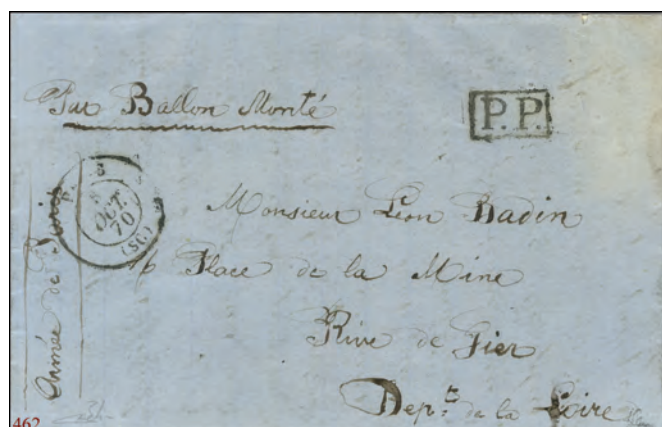 Par Ballon Monté
P.P.
OCT.
70
(SC)
Armée de Paris
Monsieur Léon Badin
Place de la Mine
Rive de Gier
Dep.t de la Loire
462